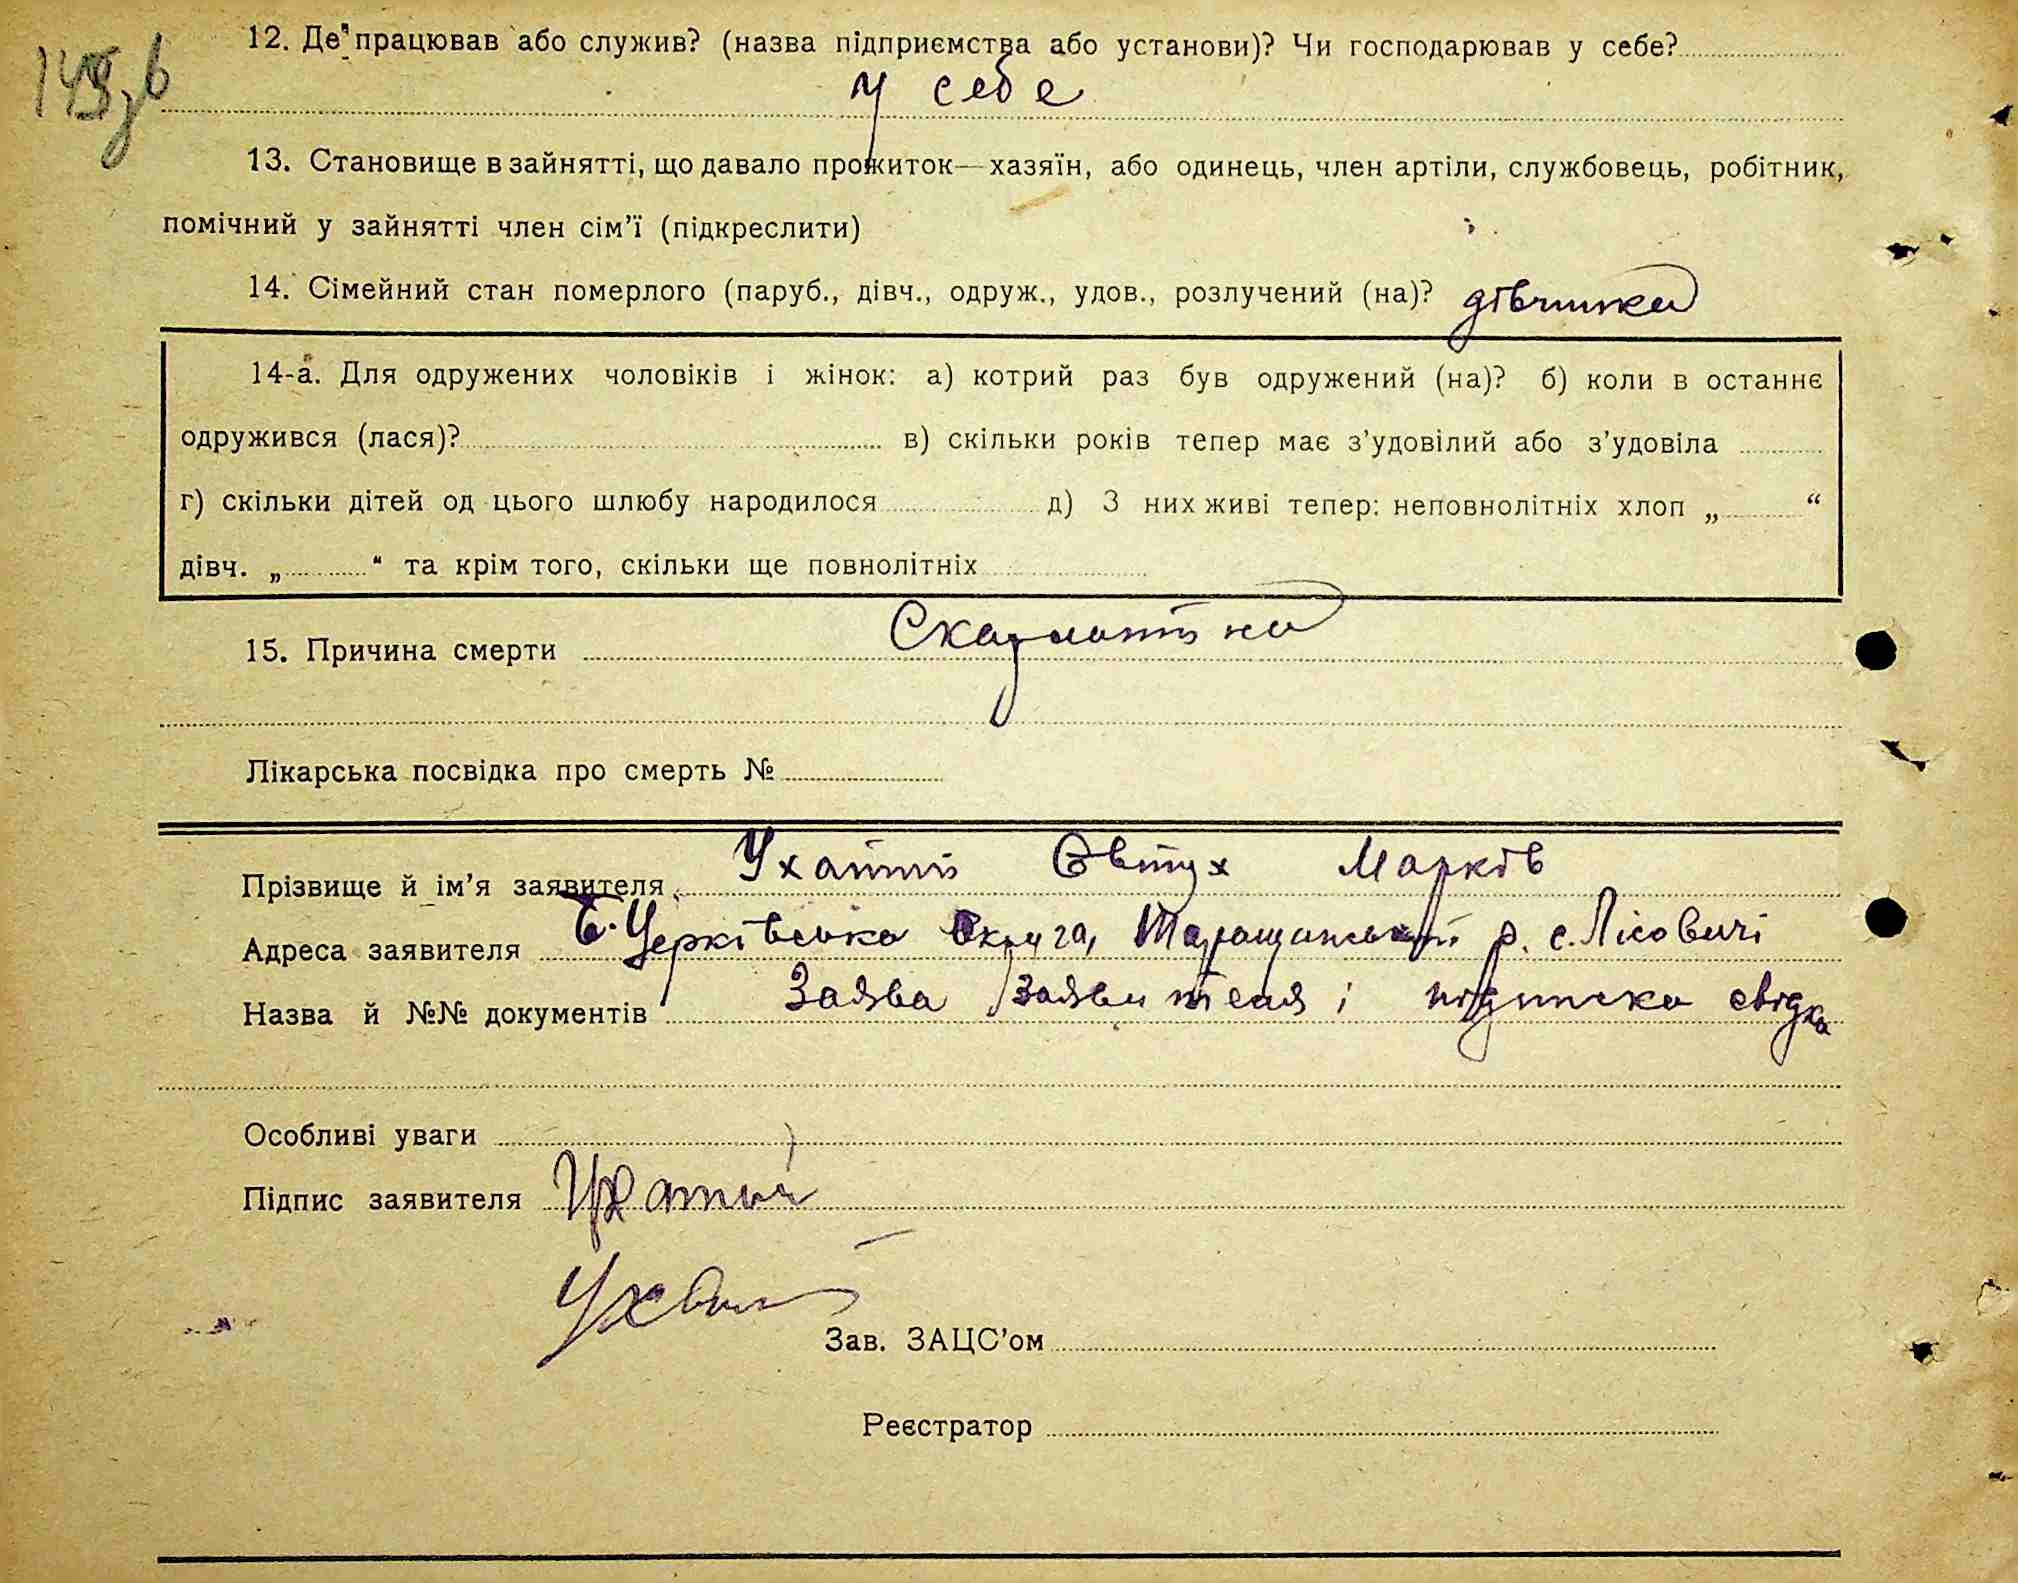 12. Де працював або служив? (назва підприємства або установи)? Чи господарював у себе?
у себе
13. Становище в зайнятті, що давало прожиток—хазяїн, або одинець, член артіли, службовець, робітник,
помічний у зайнятті член сім’ї (підкреслити)
14. Сімейний стан померлого (паруб., дівч., одруж., удов., розлучений (на)? дівчинка
14-а. Для одружених чоловіків і жінок: а) котрий раз був одружений (на)? б) коли в останнє
одружився (лася)? в) скільки років тепер має з’удовілий або з’удовіла
г) скільки дітей од цього шлюбу народилося д) З них живі тепер: неповнолітніх хлоп „ “
дівч. „ “ та крім того, скільки ще повнолітніх
15. Причина смерти Скарлатіна
Лікарська посвідка про смерть №
Прізвище й ім’я заявителя Ухатий Євтух Марків
Адреса заявителя Б.Церківська Округа, Таращанський р. с. Лісовичі
Назва й №№ документів Заява заявителя і підписка свідка
Особливі уваги
Підпис заявителя Ухатий
Зав. ЗАЦС’ом
Реєстратор